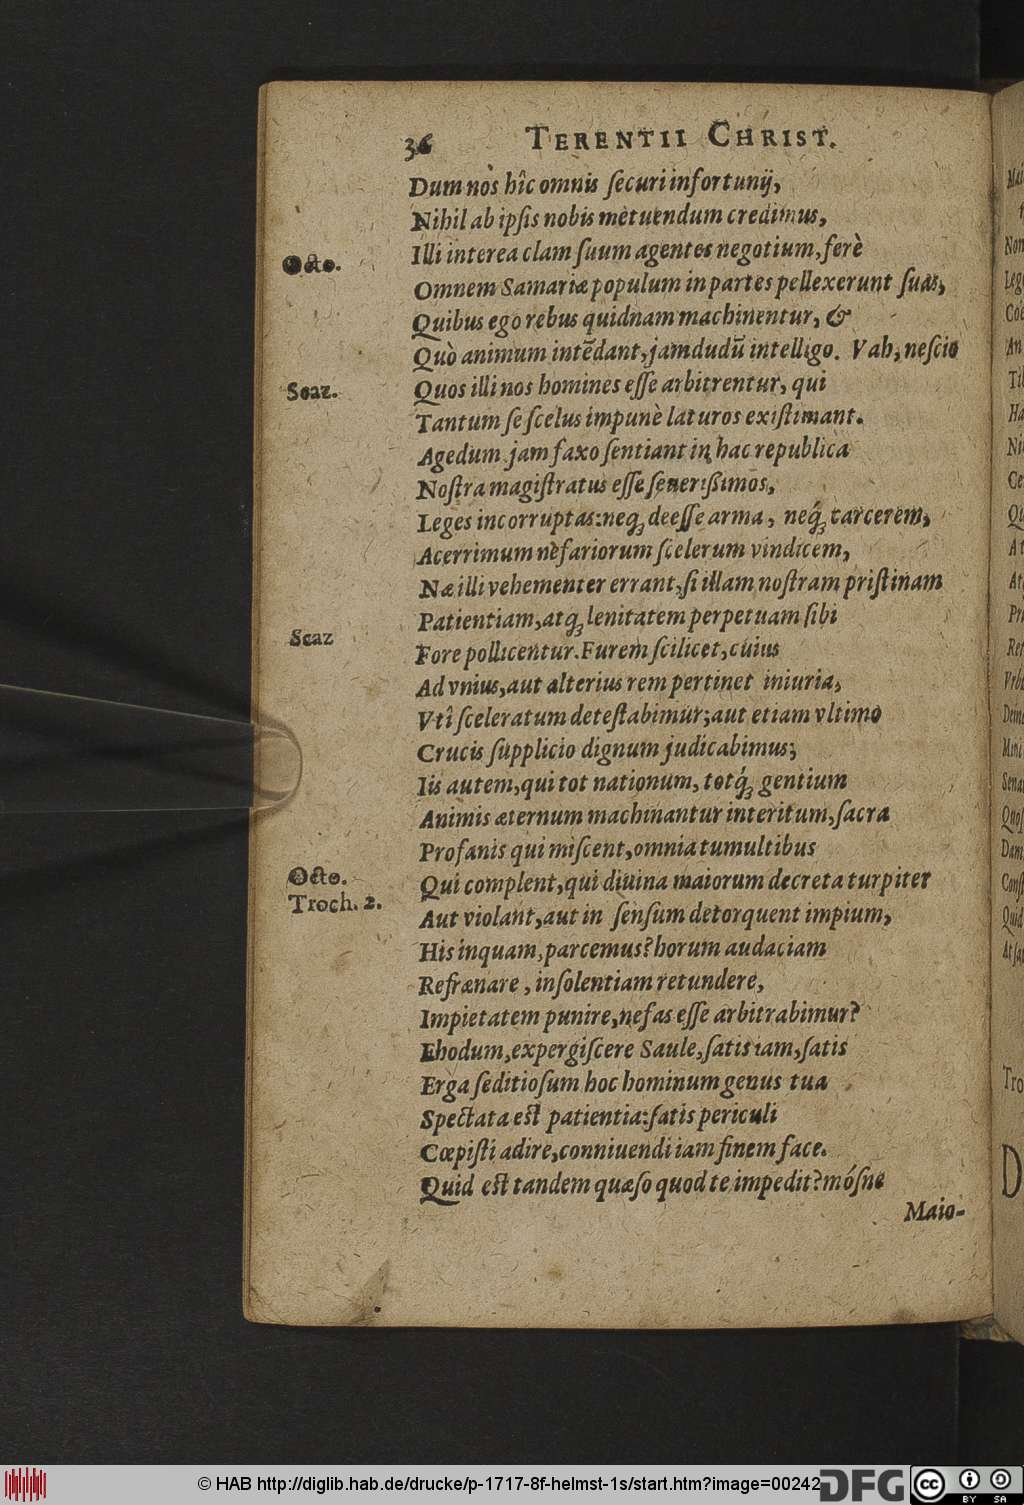 36 TERENTII CHRIST.
Dum nos hîc omnis ſecuri infortunij,
Nihil ab ipſis nobis metuendum credimus,
Octo. Illi interea clam ſuum agentes negotium, ferè
Omnem Samariæ populum in partes pellexerunt ſuas,
Quibus ego rebus quidnam machinentur, &
Quò animum intēdant, jamdudū intelligo. Vah, neſcio
Scaz. Quos illi nos homines eſſe arbitrentur, qui
Tantum ſe ſcelus impunè laturos exiſtimant.
Agedum jam faxo ſentiant in hac republica
Noſtra magiſtratus eſſe ſeverißimos,
Leges incorruptas: neqꝫ deeſſe arma, neq́ꝫ carcerem,
Acerrimum nefariorum ſcelerum vindicem,
Næ illi vehementer errant, ſi illam noſtram priſtinam
Patientiam, atqꝫ lenitatem perpetuam ſibi
Scaz Fore pollicentur. Furem ſcilicet, cuius
Ad vnius, aut alterius rem pertinet iniuria,
Vtî ſceleratum deteſtabimur; aut etiam vltimo
Crucis ſupplicio dignum judicabimus;
Iis autem, qui tot nationum, totq́ꝫ gentium
Animis æternum machinantur interitum, ſacra
Profanis qui miſcent, omnia tumultibus
Octo. Qui complent, qui diuina maiorum decreta turpiter
Troch. 2. Aut violant, aut in ſenſum detorquent impium,
His inquam, parcemus? horum audaciam
Refrænare, inſolentiam retundere,
Impietatem punire, nefas eſſe arbitrabimur?
Ehodum, expergiſcere Saule, ſatis iam, ſatis
Erga ſeditioſum hoc hominum genus tua
Spectata est patientia: ſatis periculi
Cœpiſti adire, conniuendi iam finem face.
Quid est tandem quæſo quod te impedit? móſne
Maio-
© HAB http://diglib.hab.de/drucke/p-1717-8f-helmst-1s/start.htm?image=00242
DFG
cc BY SA